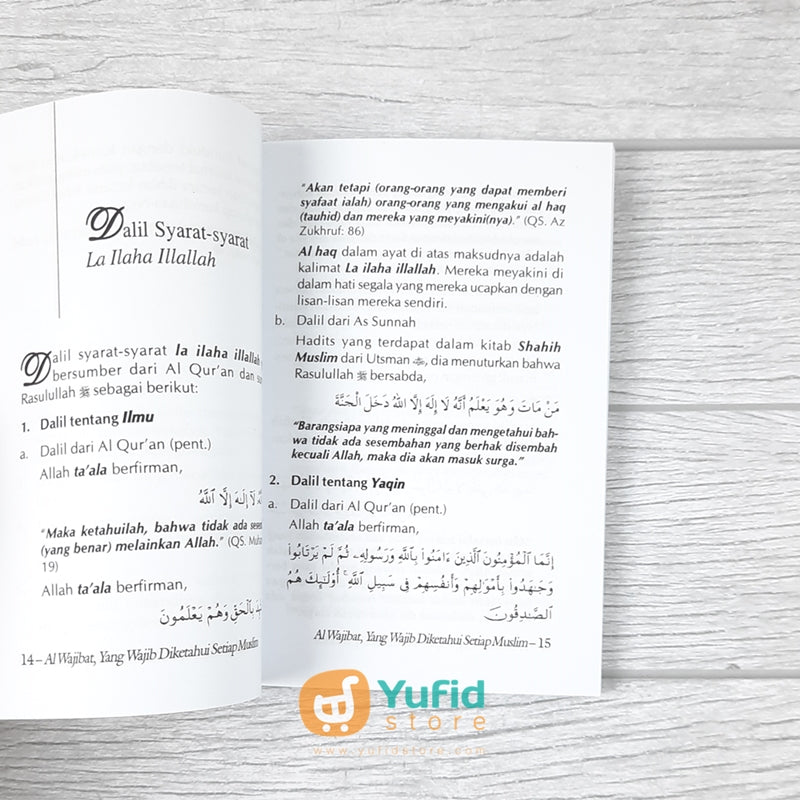 Dalil Syarat-syarat
La Ilaha Illallah
Dalil syarat-syarat la ilaha illallah
bersumber dari Al Qur'an dan
Rasulullah ﷺ sebagai berikut:
1. Dalil tentang Ilmu
a. Dalil dari Al Qur'an (pent.)
Allah ta'ala berfirman,
لَآ إِلَٰهَ إِلَّا ٱللَّهُ
"Maka ketahuilah, bahwa tidak ada
(yang benar) melainkan Allah." (QS.
19)
Allah ta'ala berfirman,
بِٱلْحَقِّ وَهُمْ يَعْلَمُونَ
14 – Al Wajibat, Yang Wajib Diketahui Setiap Muslim
"Akan tetapi (orang-orang yang dapat memberi
syafaat ialah) orang-orang yang mengakui al haq
(tauhid) dan mereka yang meyakini(nya)." (QS. Az
Zukhruf: 86)
Al haq dalam ayat di atas maksudnya adalah
kalimat La ilaha illallah. Mereka meyakini di
dalam hati segala yang mereka ucapkan dengan
lisan-lisan mereka sendiri.
b. Dalil dari As Sunnah
Hadits yang terdapat dalam kitab Shahih
Muslim dari Utsman , dia menuturkan bahwa
Rasulullah ﷺ bersabda,
مَنْ مَاتَ وَهُوَ يَعْلَمُ أَنَّهُ لَا إِلَهَ إِلَّا اللهُ دَخَلَ الْجَنَّةَ
"Barangsiapa yang meninggal dan mengetahui bah-
wa tidak ada sesembahan yang berhak disembah
kecuali Allah, maka dia akan masuk surga."
2. Dalil tentang Yaqin
a. Dalil dari Al Qur'an (pent.)
Allah ta'ala berfirman,
إِنَّمَا ٱلْمُؤْمِنُونَ ٱلَّذِينَ ءَامَنُوا۟ بِٱللَّهِ وَرَسُولِهِۦ ثُمَّ لَمْ يَرْتَابُوا۟
وَجَٰهَدُوا۟ بِأَمْوَٰلِهِمْ وَأَنفُسِهِمْ فِى سَبِيلِ ٱللَّهِ ۚ أُو۟لَٰٓئِكَ هُمُ
ٱلصَّٰدِقُونَ
Al Wajibat, Yang Wajib Diketahui Setiap Muslim – 15
Yufid
store
www.yufidstore.com